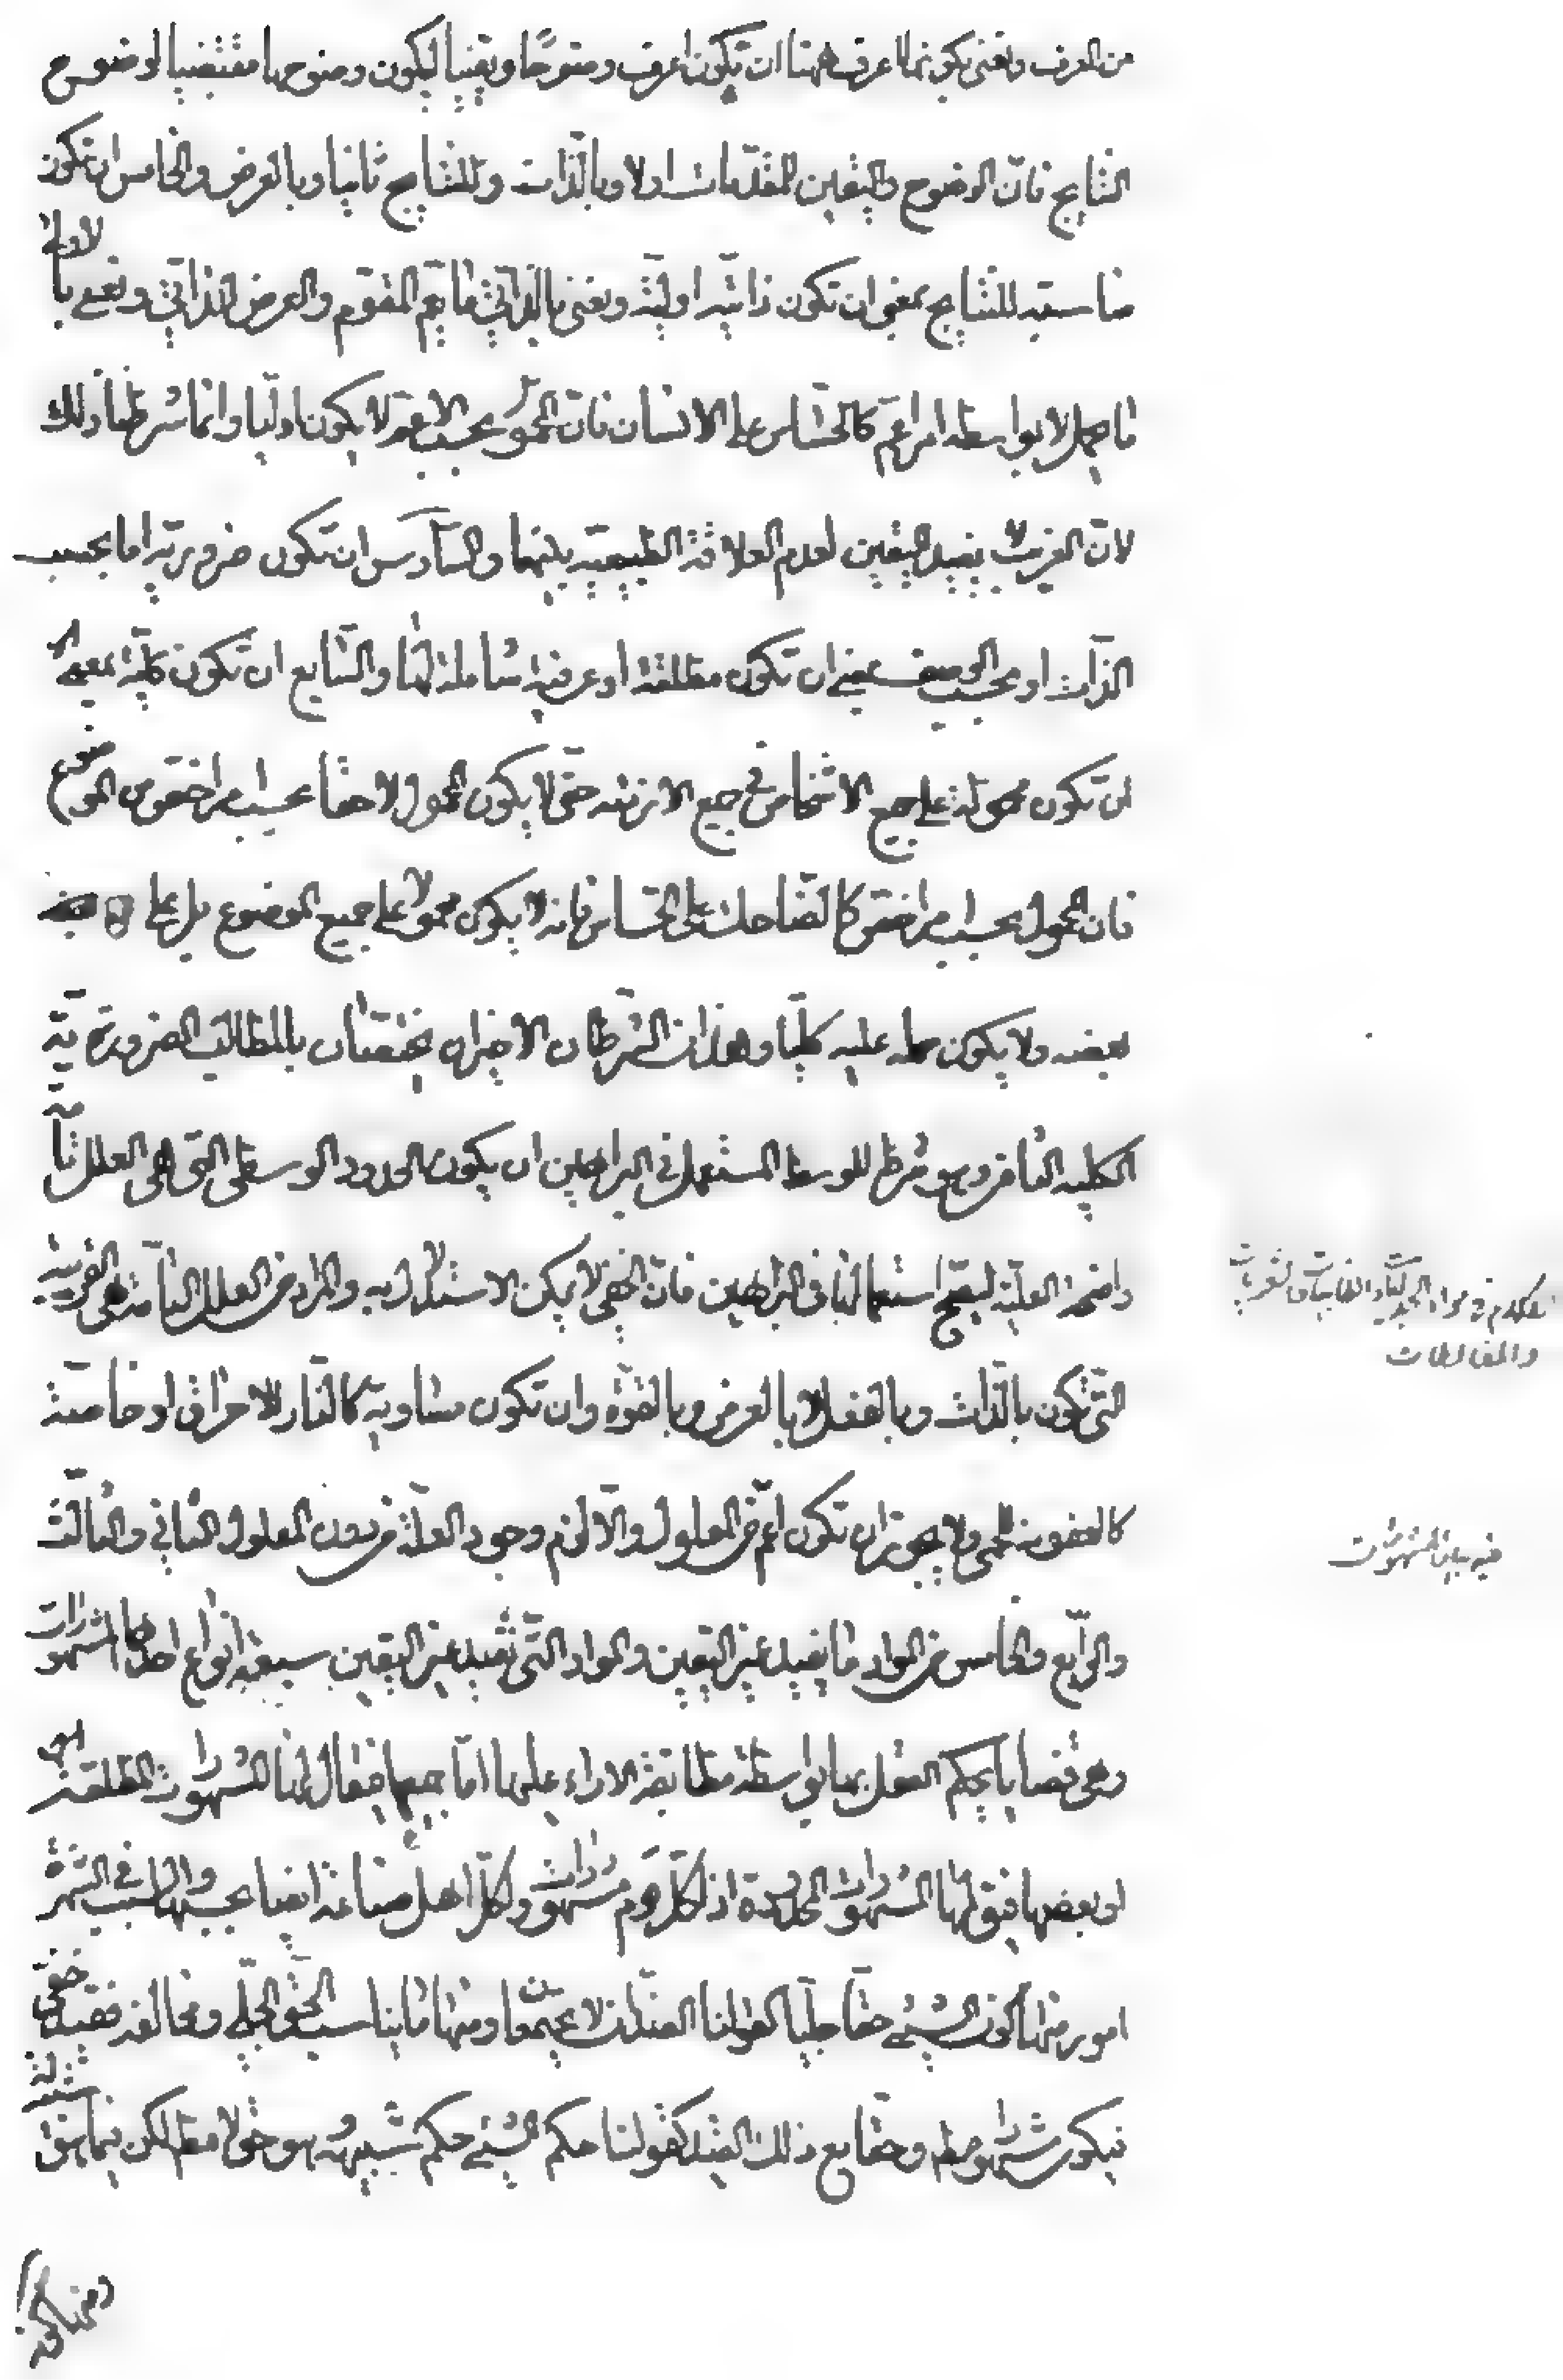 من العرف ونعنى بكونها اعرف ههنا ان تكون اعرف وضوحًا ويقينيا ليكون وضوحها مقتضيا لوضوح
النتايج فانّ الوضوح واليقين للمقدّمات اولا وبالّذات وللنتايج ثانيا وبالعرض والخامس ان تكون
مناسبة للنتايج بمعنى ان تكون ذاتيّة اوليّة ونعنى بالذاتى ما يعمّ المقوّم والعرض الذاتي ونعنى بالاولى
ما يحمل لا بواسطه امر اعمّ كالحسّاس على الانسان فانّ المحمول بحسب الامر الاعم لا يكون اوليّا وانما شرطنا ذلك
لانّ الغريب لا يفيد اليقين لعدم العلاقة الطبيعيّة بينهما والسّادس ان تكون ضروريّة اما بحسب
الذّات او بحسب الوصف بمعنى ان تكون مطلقة او عرفية شاملة لهما والسّابع ان تكون كليّة بمعنى
ان تكون محمولة على جميع الاشخاص فى جميع الازمنه حتّى لا يكون المحمول لاحقا بحسب امر اخصّ من الموضوع
فان المحمول بحسب امر اخصّ كالضاحك على الحسّاس فانه لا يكون محمولا على جميع الموضوع بل على
بعضه ولا يكون حمله عليه كليّا وهذان الشّرطان الاخيران يختصّان بالمطالب الضروريّة
الكليه التا وشرط للوسط المستعمل فى البراهين ان يكون الحدود الوسطى التى هى العلل
واضحة العليّة ليصحّ استعمالها فى البراهين فانّ الخفى لا يمكن الاستدلال به والمراد من العلل التامّة هى القريبة
التّى تكون بالذّات وبالفعل لا بالعرض وبالقوّة وان تكون مساويه كالنّار للاحراق او خاصّة
كالعفونة للحمى ولا يجوز ان تكون اعمّ من المعلول والّا لزم وجود العلّة من دون المعلول الثانى والثالث
والرّابع والخامس من المواد ما يفيد غير اليقين والمواد التّى تفيد غير اليقين سبعة انواع احدها المشهورات
وهى قضايا يحكم العقل بها بواسطة مطابقة الاراء عليها امّا جميعها فيقال لها المشهورات المطلقة
او بعضها فيق لها المشهورات المحدودة اذ لكلّ قوم مشهورات ولكلّ اهل صناعة ايضا بحسبها والسبب فى الشّهرة
امور منها كون الشىء حقّا جليّا كقولنا الضّدان لا يجتمعان ومنها ما يناسب الحقّ الجلّى ويخالفه بقيد خفى
فيكون مشهورا مطـ وحقّا مع ذلك القيد كقولنا حكم الشىء حكم شبيهه وهو حقّ لا مطـ لكن فيما
الكلام فى مواد الجدليّات والخطابيات والشعريات
والمغالطات
فيه بيان المشهورات